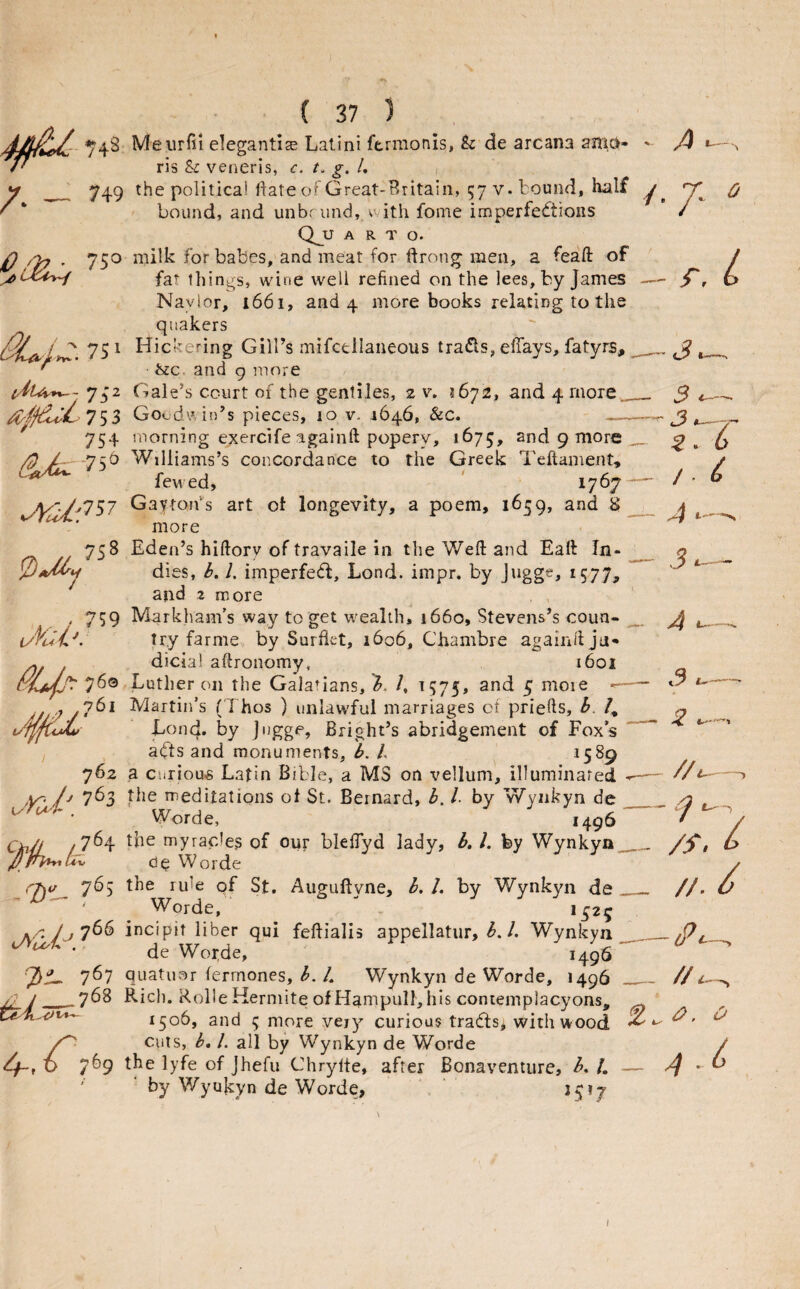 ( 37 )
748 Meurſii elegantiæ Latini ſermonis, & de arcana amo-
ris & veneris, c. t. g. l.
7. 749 the political ſtate of Great-Britain, 37 v. bound, half 7.
bound, and unbound, with ſome imperfections
QUARTO.
750 milk for babes, and meat for ſtrong men, a feaſt of
fat things, wine well refined on the lees, by James 5, 6
Naylor, 1661, and 4 more books relating to the
quakers
751 Hickering Gill's miſcellaneous tracts, eſſays, ſatyrs, 3
&c. and 9 more
752 Gale's court of the gentiles, 2 v. 1672, and 4 more 3
753 Goodwin's pieces, 10 v. 1646, &c. 3
754 morning exerciſe againſt popery, 1675, and 9 more 2. 6
756 Williams's concordance to the Greek Teſtament,
ſewed, 1767 1. 6
757 Gayton's art of longevity, a poem, 1659, and 8 4
more
758 Eden's hiſtory of travaile in the Weſt and Eaſt In-
dies, b. l. imperfect, Lond. impr. by Jugge, 1577, 3
and 2 more
759 Markham's way to get wealth, 1660, Stevens's coun- 4
try farme by Surflet, 1606, Chambre againſt ju-
dicial aſtronomy, 1601
760 Luther on the Galatians, b. l, 1575, and 5 more 3
761 Martin's (Thos ) unlawful marriages of prieſts, b. l,
Lond. by Jugge, Bright's abridgement of Fox's 2
acts and monuments, b. l. 1589
762 a curious Latin Bible, a MS on vellum, illuminated 11
763 the meditations of St. Bernard, b. l. by Wynkyn de
Worde, 1496 9
764 the myracles of our bleſſyd lady, b. l. by Wynkyn 15, 6
de Worde
Do 765 the rule of St. Auguſtyne, b. l. by Wynkyn de 11. 6
Worde, 1525
766 incipit liber qui feſtialis appellatur, b. l. Wynkyn
de Worde, 1496
Do 767 quatuor ſermones, b. l. Wynkyn de Worde, 1496 11
768 Rich. Rolle Hermite of Hampull, his contemplacyons,
1506, and 5 more very curious tracts, with wood 2 0. 0
cuts, b. l. all by Wynkyn de Worde
4, 6 769 the lyfe of Jheſu Chryſte, after Bonaventure, b. l. 4 - 6
by Wynkyn de Worde, 1517